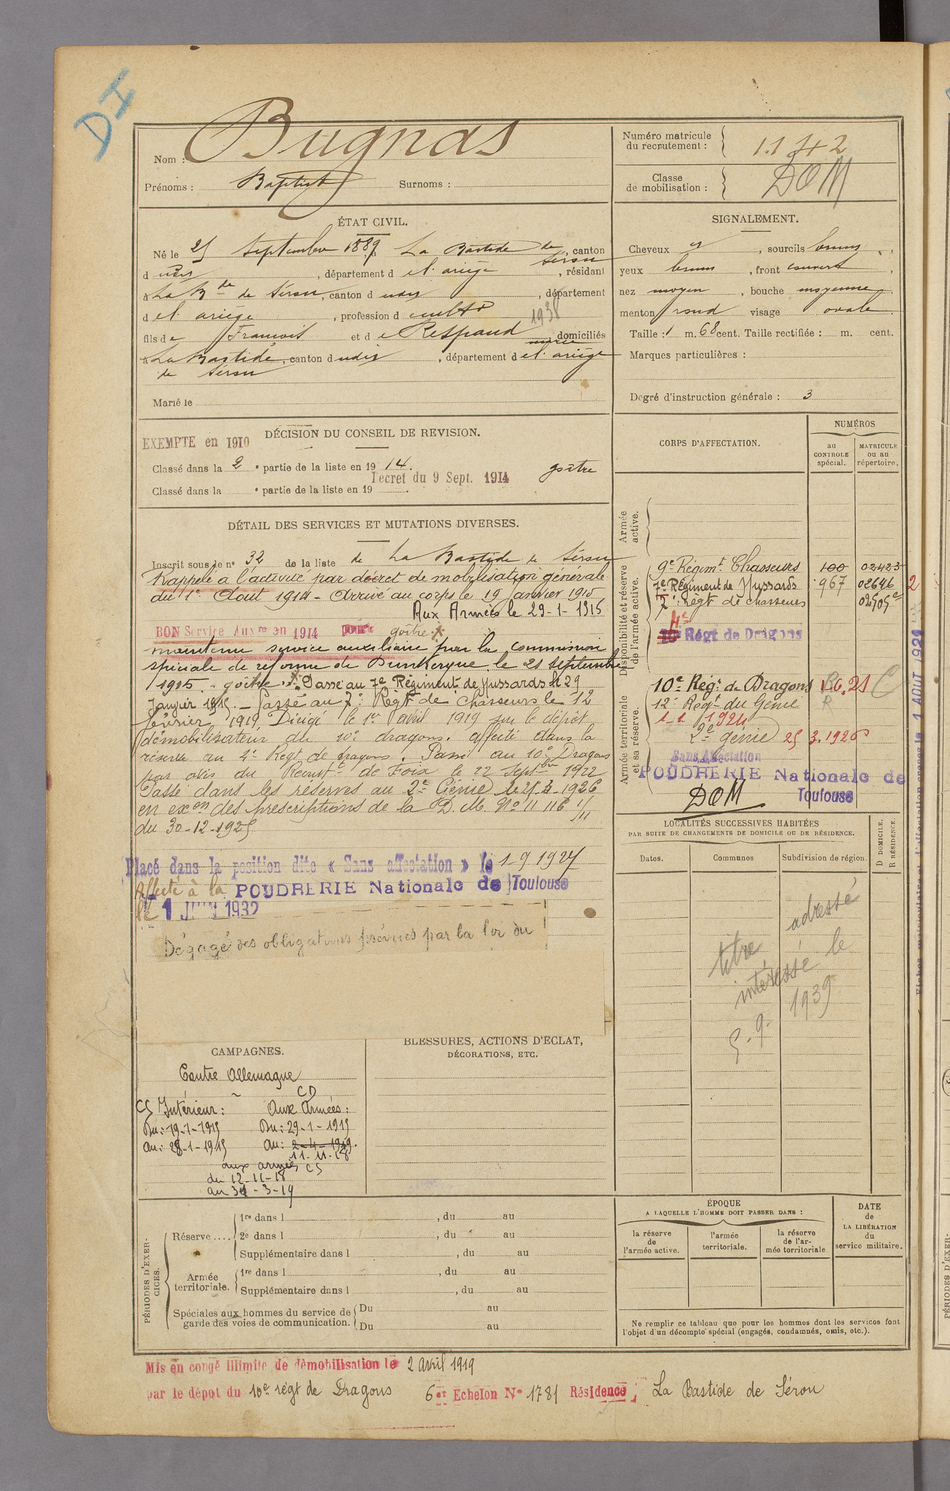 DI
Nom : Bugnas
Prénoms : Baptiste Surnoms :
Numéro matricule du recrutement : 1142
Classe de mobilisation : DOM
ÉTAT CIVIL.
Né le 25 septembre 1889, La Bastide de Sérou, canton
d udit, département d e l'ariège, résidant
à La Bde de Sérou, canton d udit, département
d e l'ariège, profession d cultr
1938
fils de François et d e Respaud domiciliés
à La Bastide de Sérou, canton dudit, département de l'ariège
Marié le
SIGNALEMENT.
Cheveux , sourcils bruns
yeux bruns, front couvert
nez moyen, bouche moyenne
menton rond visage ovale
Taille : 1 m. 68 cent. Taille rectifiée : m. cent.
Marques particulières :
Degré d'instruction générale : 3
DÉCISION DU CONSEIL DE REVISION.
EXEMPTE en 1910
Classé dans la 2e partie de la liste en 1914. goître
Décret du 9 Sept. 1914
Classé dans la e partie de la liste en 19
DÉTAIL DES SERVICES ET MUTATIONS DIVERSES.
Inscrit sous le no 32 de la liste de La Bastide de Sérou
Rappelé à l'activité par décret de mobilisation générale
du 1er Août 1914 - Arrivé au corps le 19 janvier 1915
Aux Armées le 29-1-1915
BON Service Auxre en 1914 goître
maintenu service auxiliaire par la commission
spéciale de réforme de Dunkerque le 21 septembre
1915. - goître. Passé au 7e Régiment de Hussards le 29
Janvier 1915. - Passé au 7e Régt de Chasseurs le 12
février 1919 Dirigé le 1er avril 1919 sur le dépôt
démobilisateur du 10e dragons. affecté dans la
réserve au 4e Régt de dragons. Passé au 10e Dragons
par avis du Recrutt de Foix le 22 Septbre 1922
Passé dans les réserves au 2e Génie le 25-3-1926
en exon des prescriptions de la D. M. No 11 116 1/11
du 30-12-1925
Placé dans la position dite « Sans affectation » le 1-9 1927
Affecté à la POUDRERIE Nationale de Toulouse
le 1 JUIN 1932
Dégagé des obligations prévues par la loi du
CORPS D'AFFECTATION.
NUMÉROS
au CONTROLE spécial.
MATRICULE ou au répertoire.
Armée active.
Disponibilité et réserve de l'armée active.
9e Régimt Chasseurs 100 02423
7e Régiment de Hussards 967 02646
7e Régt de chasseurs 02505
4e
Régt de Dragons
Armée territoriale et sa réserve.
10e Régt de Dragons R 6,21 C
12e Régt du Génie R
1.1 1924
2e génie 25 3.1926
Sans Affectation
POUDRERIE Nationale de Toulouse
DOM
LOCALITÉS SUCCESSIVES HABITÉES
PAR SUITE DE CHANGEMENTS DE DOMICILE OU DE RÉSIDENCE.
Dates. Communes Subdivision de région.
D DOMICILE. R RÉSIDENCE.
titre adressé
intéressé le
5.9. 1939
CAMPAGNES.
Contre Allemagne
CS Intérieur : CD Aux Armées :
Du : 19-1-1915 Du : 29-1-1915
au : 28-1-1915 au : 2-4-1919.
11-11-18
aux armées CS
du 12-11-18
au 31-3-19
BLESSURES, ACTIONS D'ÉCLAT,
DÉCORATIONS, ETC.
PÉRIODES D'EXERCICES.
Réserve .... 1re dans l , du au
2e dans l , du au
Supplémentaire dans l , du au
Armée territoriale. 1re dans l , du au
Supplémentaire dans l , du au
Spéciales aux hommes du service de garde des voies de communication. Du au
Du au
ÉPOQUE
A LAQUELLE L'HOMME DOIT PASSER DANS :
la réserve de l'armée active.
l'armée territoriale.
la réserve de l'armée territoriale
DATE de LA LIBÉRATION du service militaire.
Ne remplir ce tableau que pour les hommes dont les services font
l'objet d'un décompte spécial (engagés, condamnés, omis, etc.).
Mis en congé illimité de démobilisation le 2 avril 1919
par le dépôt du 10e régt de Dragons 6e Echelon No 1781 Résidence : La Bastide de Sérou